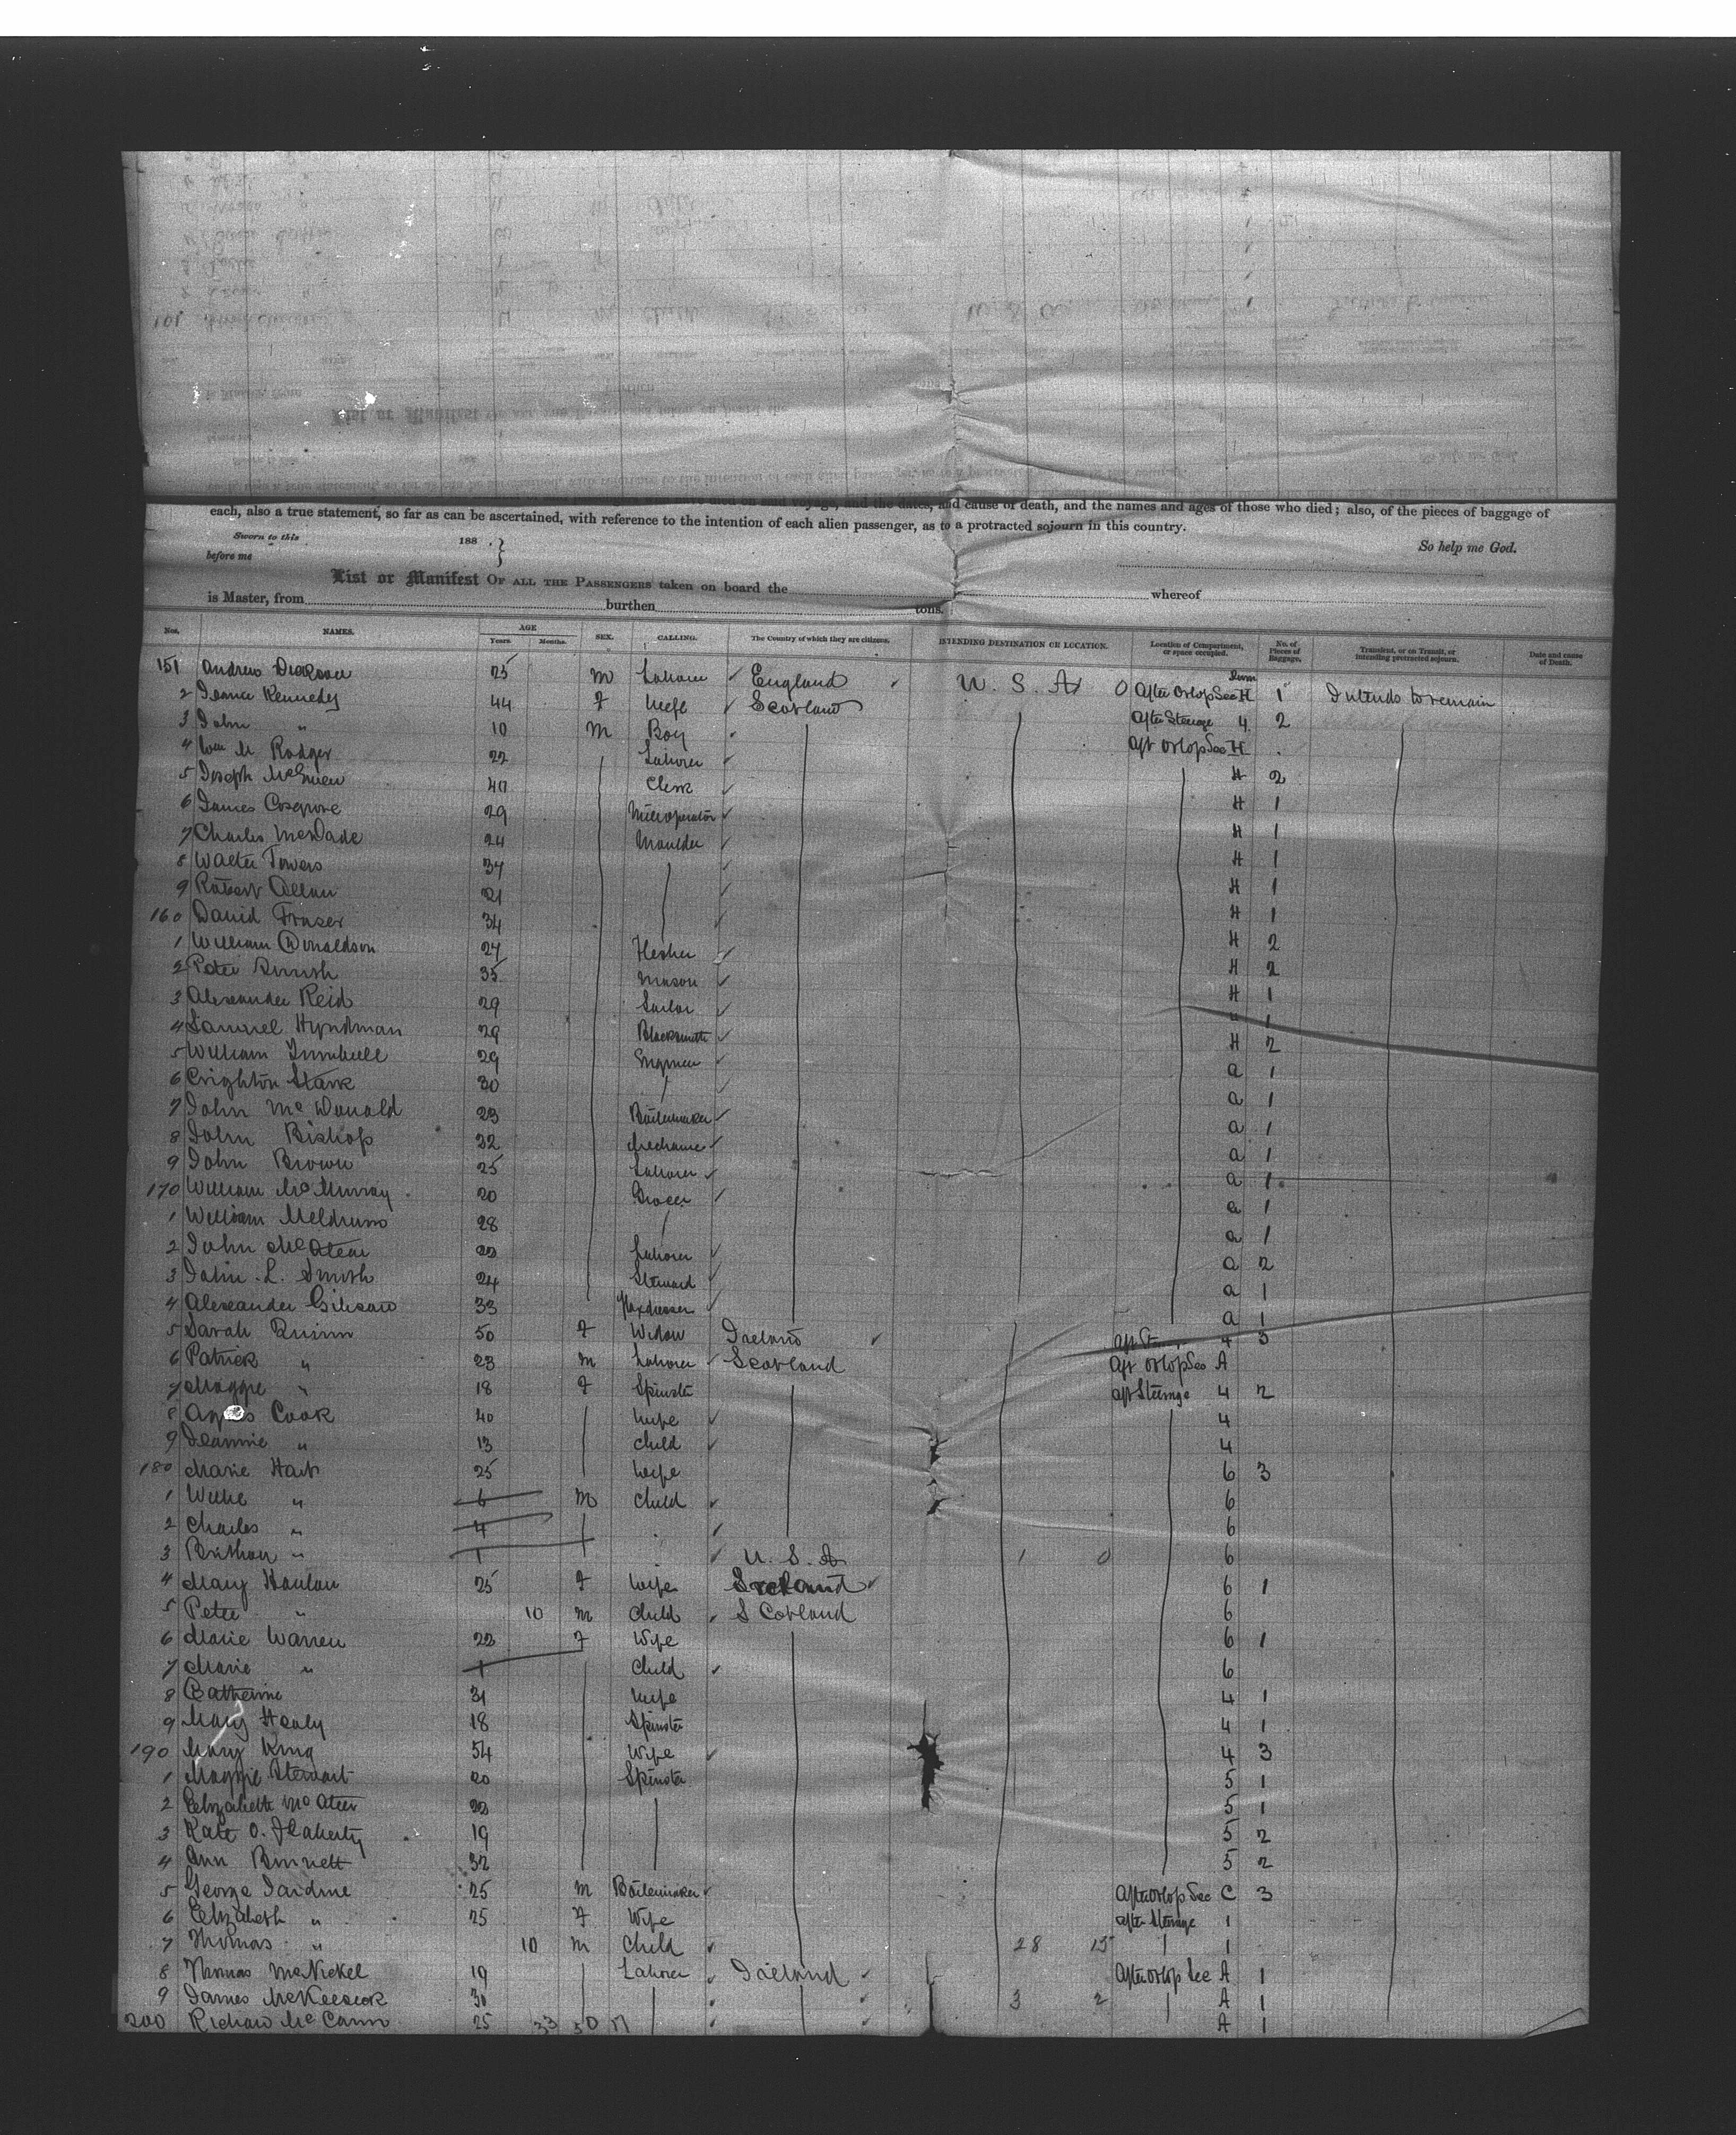 each, also a true statement, so far as can be ascertained, with reference to the intention of each alien passenger, as to a protracted sojourn in this country.
Sworn to this 188 . }
before me
So help me God.
List or Manifest OF ALL THE PASSENGERS taken on board the whereof
is Master, from burthen tons.
Nos. NAMES. AGE Years. Months. SEX. CALLING. The Country of which they are citizens. INTENDING DESTINATION OR LOCATION. Location of Compartment, or space occupied. No. of Pieces of Baggage. Transient, or on Transit, or intending protracted sojourn. Date and cause of Death.
151 Andrew 25 m Laborer England U. S. A 0 After Orlop Sec H 1 Intends to remain
2 Kennedy 44 F Wife Scotland After Steerage 4 2
3 John " 10 m Boy Aft Orlop Sec H
4 Wm M Rodger 22 Laborer H 2
5 Joseph 40 Clerk H 1
6 James Cosgrove 29 Milloperator H 1
7 Charles McDade 24 Moulder H 1
8 Walter Towers 34 H 1
9 Robert Allan 21 H 1
160 David Fraser 34 H 2
1 William Donaldson 27 H 2
2 Peter 35 Mason H 1
3 Alexander Reid 29 1
4 Samuel Hyndman 29 Blacksmith H 2
5 William Turnbull 29 Engineer a 1
6 Crighton Stark 30 a 1
7 John McDonald 23 Boilermaker a 1
8 John Bishop 32 Mechanic a 1
9 John Brown 25 Laborer a 1
170 William McMurray 20 Grocer a 1
1 William Meldrum 28 a 1
2 John McAteer Laborer a 2
3 John L. Smith 24 Steward a 1
4 Alexander Gibson 33 Flaxdresser a 1
5 Sarah Quinn 50 F Widow Ireland 4 3
6 Patrick " 23 m Laborer Scotland Aft Orlop Sec A
7 Maggie " 18 F Spinster Aft Steerage 4 2
8 Agnes Cook 40 Wife 4
9 Jeannie " 13 Child 4
180 Marie Hart 25 Wife 6 3
1 Willie " 6 m Child 6
2 Charles " 4 6
3 " 1 U. S. A 1 0 6
4 Mary Hanlon 25 F Wife Ireland 6 1
5 Peter " 10 m Child Scotland 6
6 Marie Warren 22 F Wife 6 1
7 Marie " 1 Child 6
8 Catherine 31 Wife 4 1
9 Mary Healy 18 Spinster 4 1
190 Mary King 54 Wife 4 3
1 Maggie Stewart 20 Spinster 5 1
2 Elizabeth McAteer 5 1
3 Kate O. Flaherty 19 5 2
4 Ann Bennett 32 5 2
5 George Jardine 25 m Boilermaker After Orlop Sec C 3
6 Elizabeth " 25 F Wife After Steerage 1
7 Thomas " 10 m Child 28 15 1
8 Thomas McNickel 19 Laborer Ireland After Orlop Sec A 1
9 James 30 3 2 A 1
200 Richard McCann 25 33 50 17 A 1